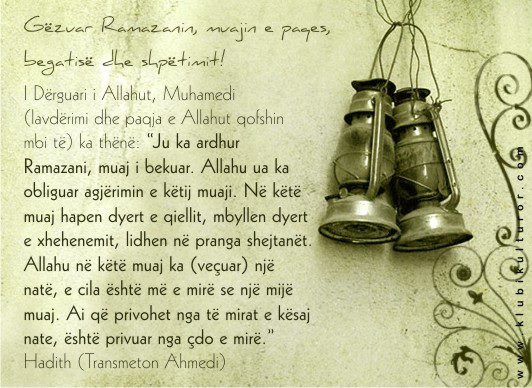 Gëzuar Ramazanin, muajin e paqes,
begatisë dhe shpëtimit!
I Dërguari i Allahut, Muhamedi
(lavdërimi dhe paqja e Allahut qofshin
mbi të) ka thënë: “Ju ka ardhur
Ramazani, muaj i bekuar. Allahu ua ka
obliguar agjërimin e këtij muaji. Në këtë
muaj hapen dyert e qiellit, mbyllen dyert
e xhehenemit, lidhen në pranga shejtanët.
Allahu në këtë muaj ka (veçuar) një
natë, e cila është më e mirë se një mijë
muaj. Ai që privohet nga të mirat e kësaj
nate, është privuar nga çdo e mirë.”
Hadith (Transmeton Ahmedi)
www.klubikulturor.com